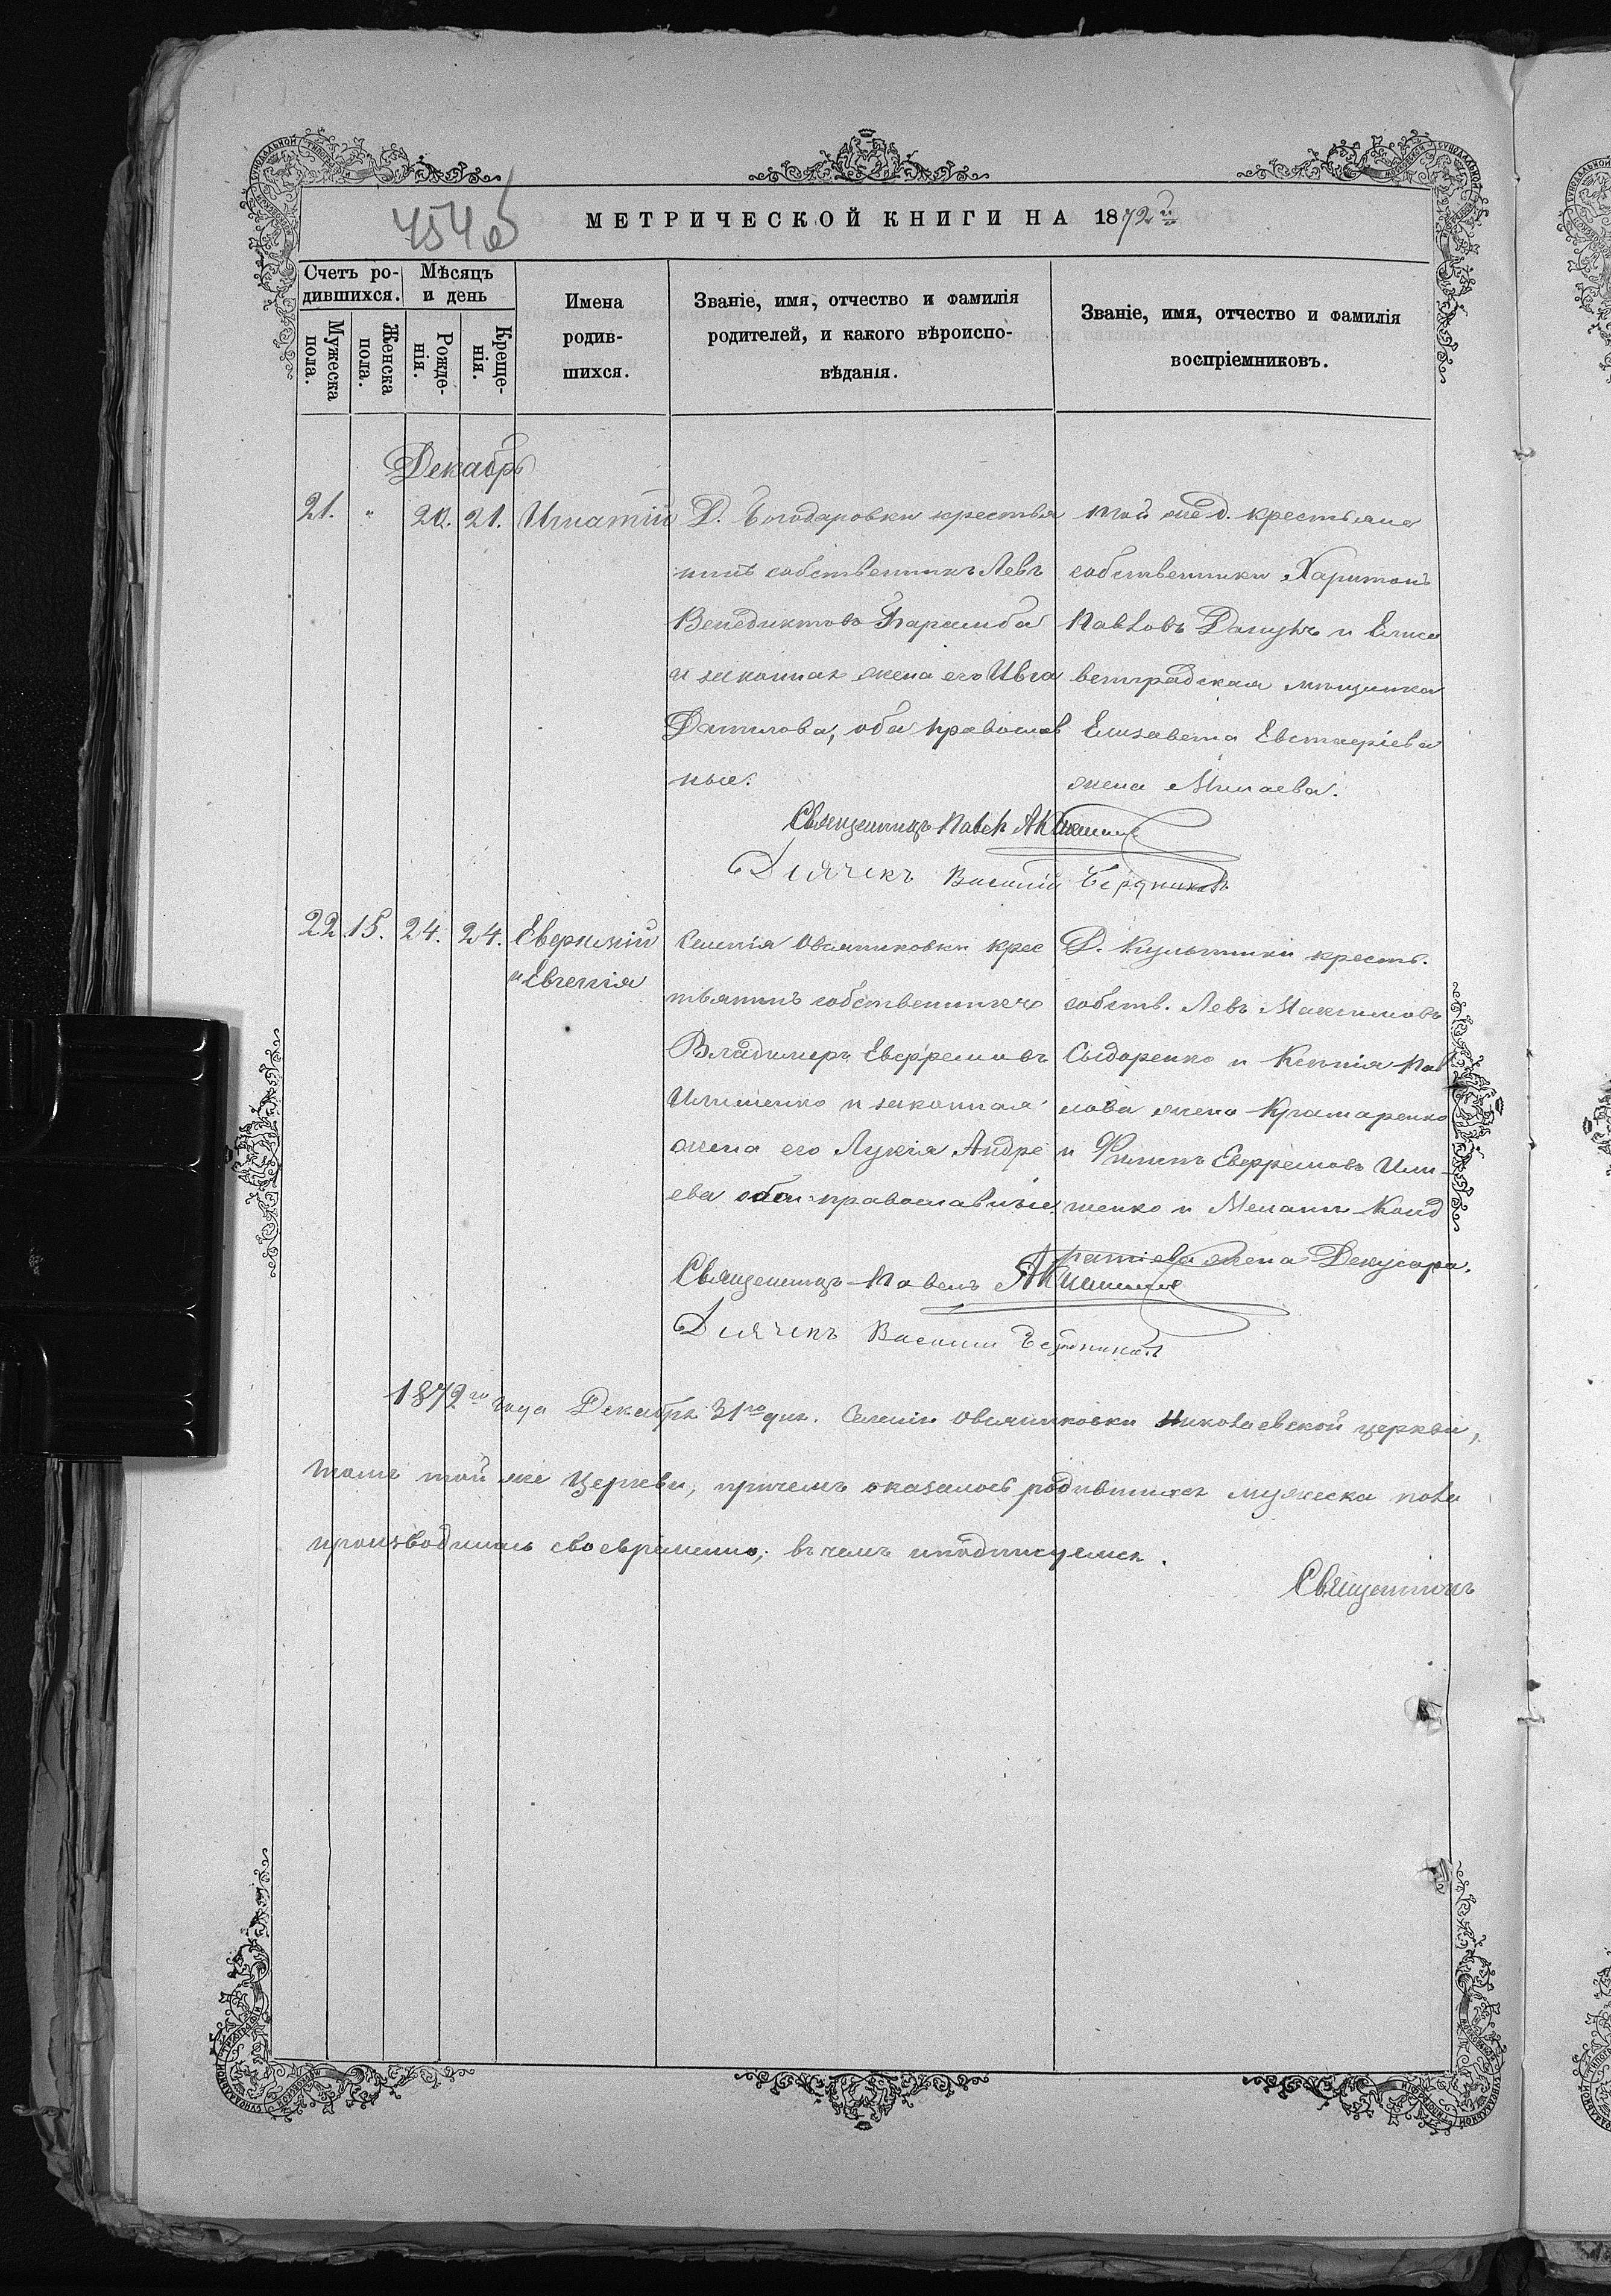 454 об
МЕТРИЧЕСКОЙ КНИГИ НА 1872й
Счетъ ро-
дившихся.
Мѣсяцъ
и день
Мужеска
пола.
Женска
пола.
Рожде-
нія.
Креще-
нія.
Имена
родив-
шихся.
Званіе, имя, отчество и фамилія
родителей, и какого вѣроиспо-
вѣданія.
Званіе, имя, отчество и фамилія
воспріемниковъ.
Декабрь
21. " 20. 21. Игнатій
Д. Богодаровки крестья
нинъ собственникъ Левъ
Венедиктовъ
и законная жена его Ивга
Данилова, оба православ
ные.
той же д. крестьяне
собственники Харитонъ
Павловъ и Елиса
ветградская мѣщанка
Елизавета Евстафіева
жена Минаева.
Священникъ Павелъ
Дьячекъ Василій Бердниковъ
22. 15. 24. 24. Еверкилій
и Евгенія
Селенія Овсянниковки крес
тьянинъ собственникъ
Владимеръ Евфремовъ
Ильшенко и законная
жена его Лукія Андре
ева оба православные.
Д. крестья.
собств. Левъ Максимовъ
Сыдоренко и Ксенія Пав
лова жена Крамаренко
и Филипъ Евфремовъ Иль-
шенко и Меланія Конд
ратіева жена
Священникъ Павелъ
Дьячекъ Василій Бердниковъ
1872го года Декабря 31го дня. Селенія Овсянниковки Николаевской церкви,
томъ той же Церкви, причемъ оказалось родившихся мужеска пола
производилась своевременно; въ чемъ и подписуемся.
Священникъ